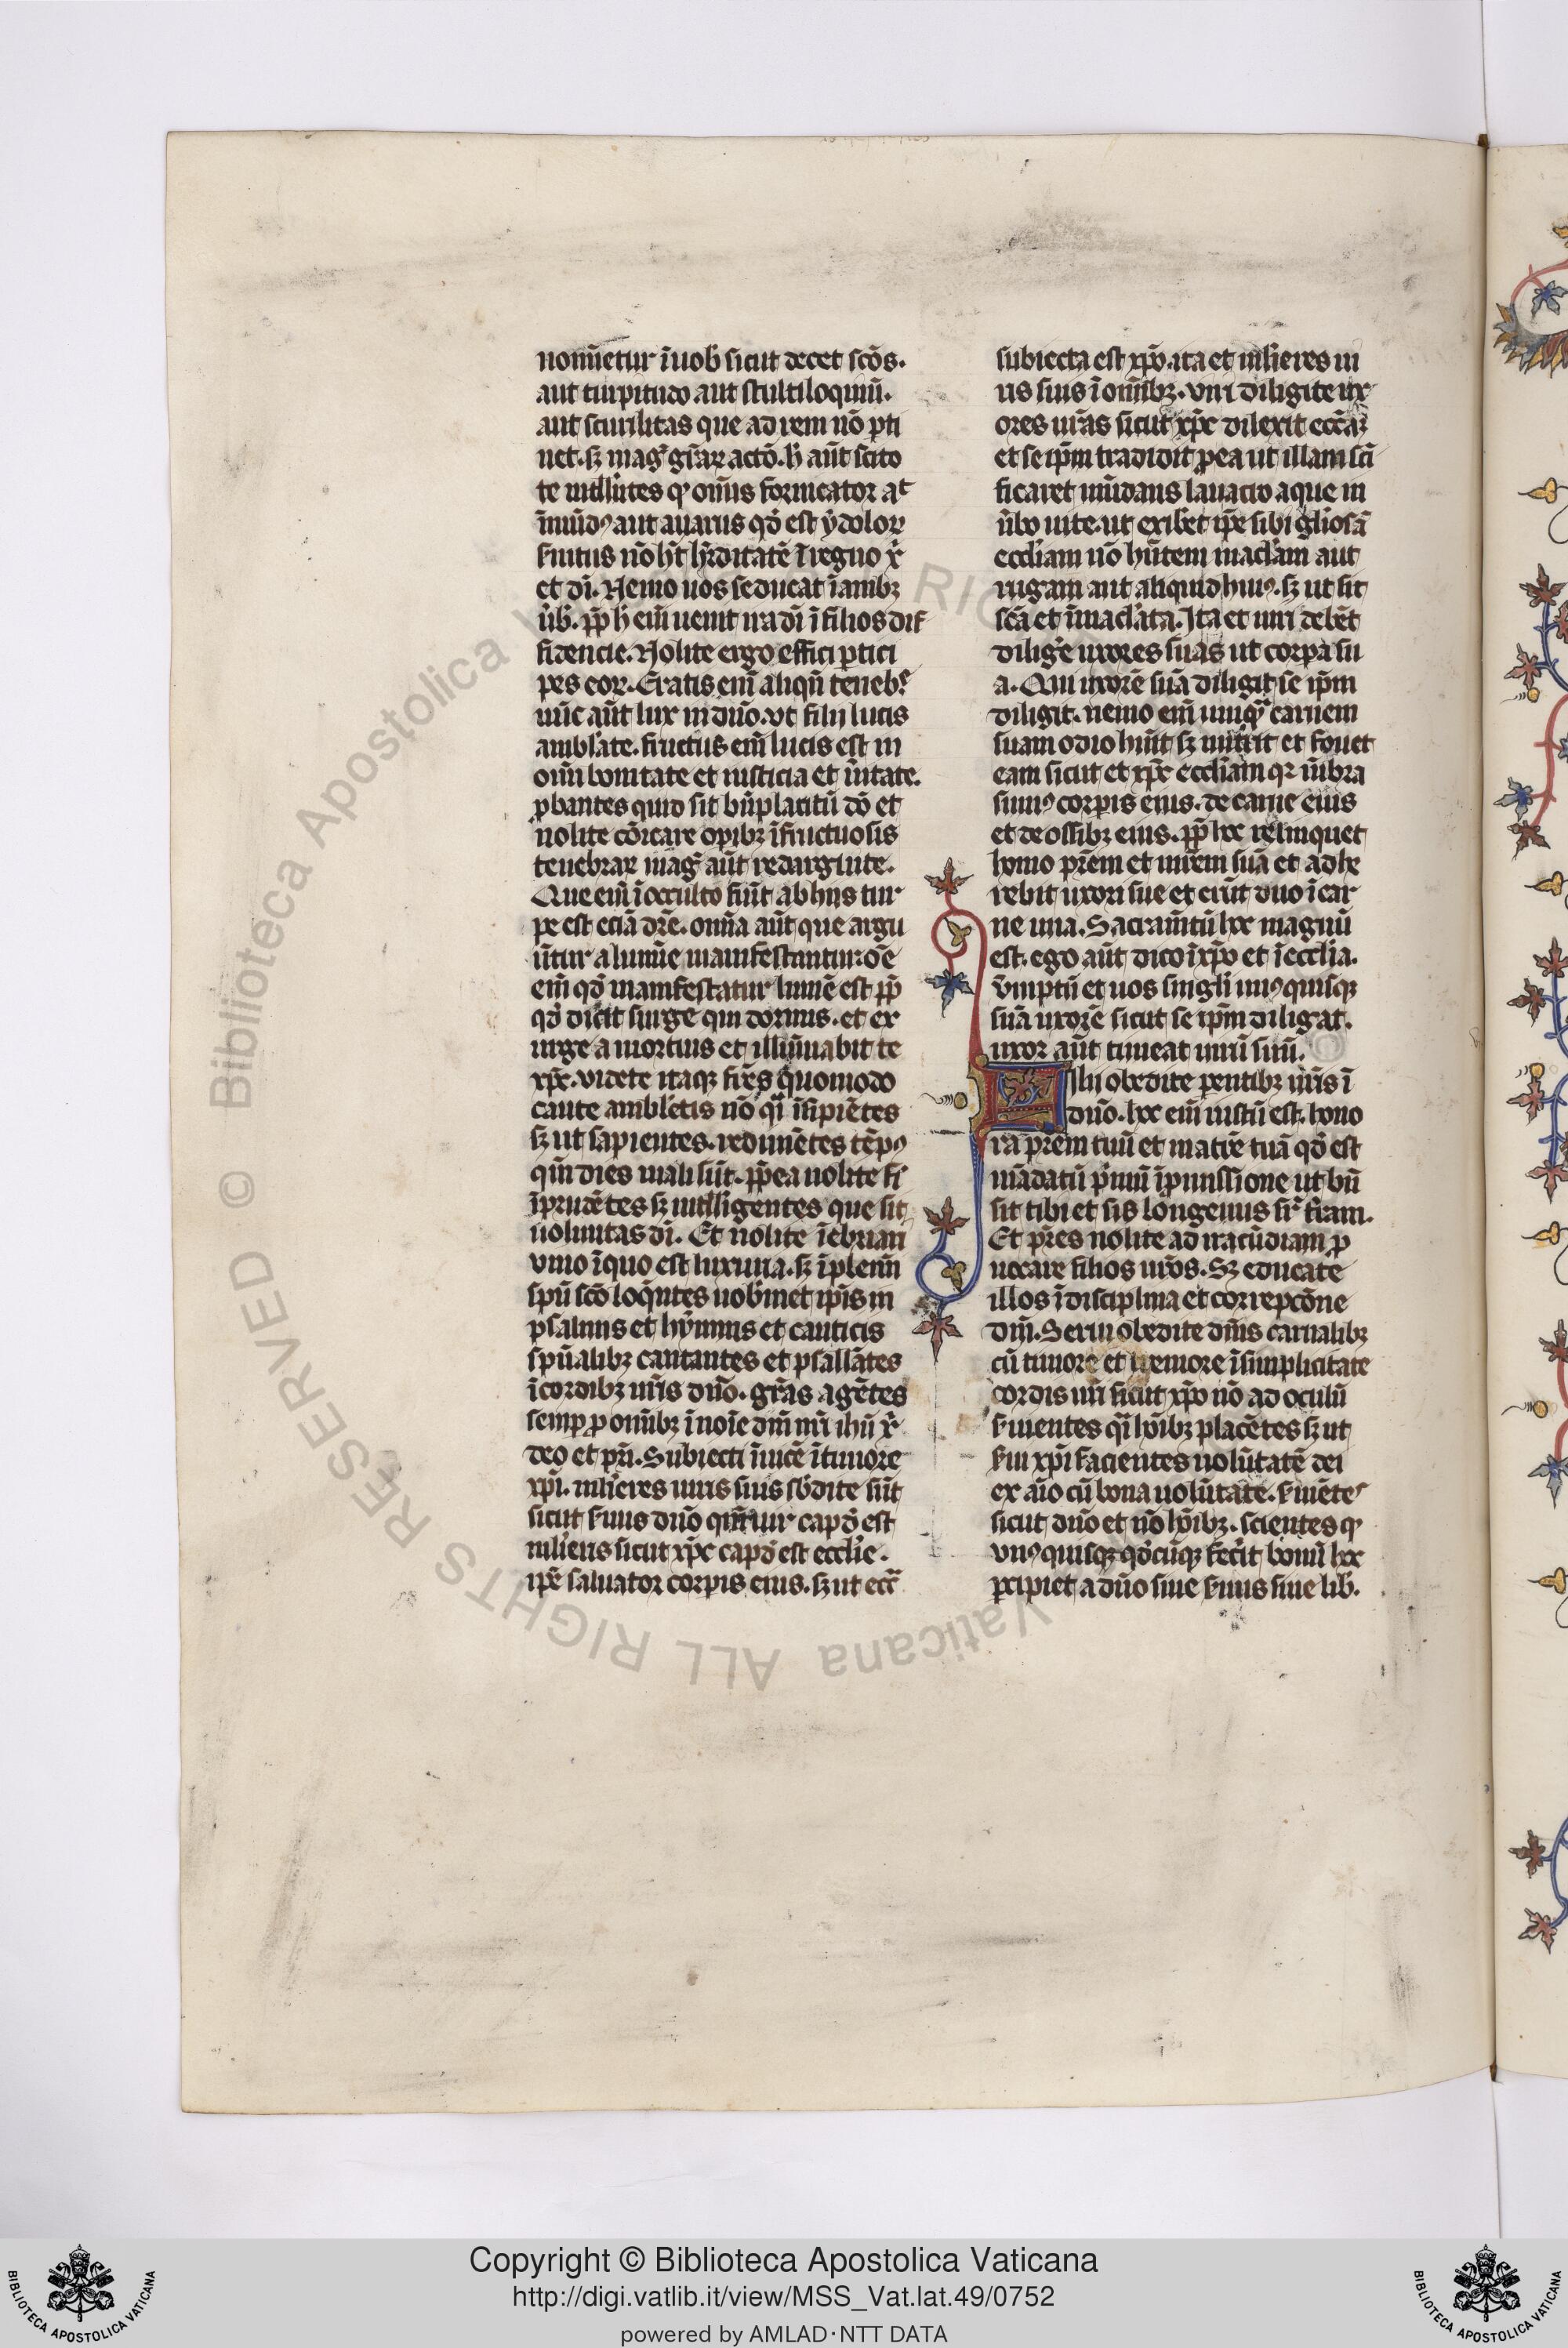 nomı̄etur ī uob̄ sicut decet sc̄os.
aut turpitudo aut stultiloquiū.
aut scurilitas que ad rem nō ꝑti
net. sꝫ mag̉ gr̄aꝝ actō. h̄ aūt scito
te intll̓ites ꝙ om̄s fornicator at
īmūdꝰ aut auarus qd̓ est ydoloꝝ
ẜuitus nō h̓t hr̄ditatē ī regno x̄
et dī. Nemo uos seducat īanibꝫ
ūb̓. ꝓp̄ h̄ em̄ uenit ira dī ī filios dif
fidencie. Nolite ergo effici ꝑtici
pes eoꝝ. Eratis em̄ aliqn̄ tenebr̓
nūc aūt lux in dn̄o. vt filij lucis
ambl̓ate. fructus em̄ lucis est in
om̄i bonitate et iusticia et ūitate.
ꝓbantes quid sit bn̄placitū dō et
nolite cōicare oꝑibꝫ īfructuosis
tenebraꝝ mag̉ aūt redarguite.
Que em̄ ī occulto fiūt ab hijs tur
pe est eciā dr̄e. om̄ia aūt que argu
ūtur a lumīe manifestantur. oē
em̄ qd̓ manifestatur lumē est ꝓp̄
qd̓ dicit surge qui dormis. et ex
urge a mortuis et illūinabit te
xp̄c. videte itaqꝫ fr̄es quomodo
caute ambletis nō qͣi īsipiētes
sꝫ ut sapientes. redimētes tēpꝰ
qm̄ dies mali sūt. ꝓp̄ea nolite fi̓
īprudētes sꝫ intll̓igentes que sit
uoluntas dī. Et nolite īebriari̓
vino ī quo est luxuria. sꝫ īplem̄
spū scō loq̄ntes uob̓met ip̄is in
psalmis et hymnis et canticis
spūalibꝫ cantantes et psallātes
ī cordibꝫ ur̄is dn̄o. gr̄as agētes
semꝑ ꝓ om̄ibꝫ ī noīe dn̄i nr̄i ihū x̄
deo et pr̄i. Subiecti īuicē ī timore
xp̄i. ml̓ieres uiris suis sb̓dite sūt
sicut ẜuus dn̄o qm̄ uir capd̓ est
ml̓ieris sicut xp̄c capd̓ est eccl̓ie.
ip̄e saluator corꝑis eius. sꝫ ut ecc̄
subiecta est xp̄o. ita et ml̓ieres ui
ris suis ī om̄ibꝫ. viri diligite ux
ores ur̄as sicut xp̄c dilexit eccā
et se ip̄m tradidit ꝓ ea ut illam scī
ficaret mūdans lauacro aque in
ūbo uite. ut exib̓et ip̄e sibi gl̓iosā
eccl̓iam nō hn̄tem macl̓am aut
rugam aut aliquid huiꝰ. sꝫ ut sit
scā et īmacl̓ata. Ita et uiri debēt
dilig̓e uxores suas ut corꝑa su
a. Qui uxorē suā diligit se ip̄m
diligit. nemo em̄ unqͣ carnem
suam odio h̓uit sꝫ nutrit et fouet
eam sicut et xp̄c eccl̓iam qꝛ mēbra
sumꝰ corꝑis eius. de carne eius
et de ossibꝫ eius. ꝓp̄ hoc relinquet
homo pr̄em et mr̄em suā et adhe
rebit uxori sue et erūt duo ī car
ne una. Sacramt̄ū hoc magnū
est. ego aūt dico ī xp̄o et ī eccl̓ia.
v̄mptū et uos singl̓i unꝰquisqꝫ
suā uxorē sicut se ip̄m diligat.
uxor aūt timeat uirū suū.
Filij obedite pentibꝫ ur̄is ī
dn̄o. hoc em̄ iustū est. hono
ra pr̄em tuū et matrē tuā qd̓ est
mādatū pͥmū ī ꝓmissione ut bn̄
sit tibi et sis longeuus sr̓ t̓ram.
Et pr̄es nolite ad iracūdiam ꝓ
uocare filios ur̄os. Sꝫ educate
illos ī disciplina et correpcōne
dn̄i. Serui obedite dn̄is carnalibꝫ
cū timore et tremore ī simplicitate
cordis ur̄i sicut xp̄o nō ad oculū
ẜuientes qͣi hoībꝫ placētes sꝫ ut
ẜui xp̄i facientes uolūtatē dei
ex aīo cū bona uolūtate. ẜuiētes
sicut dn̄o et nō hoībꝫ. scientes ꝙ
vnꝰquisqꝫ qd̓cūqꝫ fec̓it bonū hoc
ꝑcipiet a dn̄o siue ẜuus siue lib̓.
© Biblioteca Apostolica Vaticana ALL RIGHTS RESERVED
Copyright © Biblioteca Apostolica Vaticana
http://digi.vatlib.it/view/MSS_Vat.lat.49/0752
powered by AMLAD·NTT DATA
BIBLIOTECA APOSTOLICA VATICANA
BIBLIOTECA APOSTOLICA VATICANA